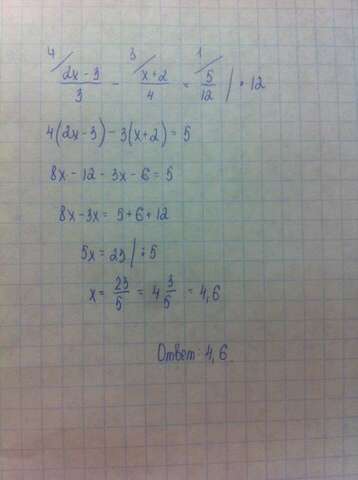 4/ (2x - 3)/3 - 3/ (x + 2)/4 = 1/ 5/12 | · 12
4(2x - 3) - 3(x + 2) = 5
8x - 12 - 3x - 6 = 5
8x - 3x = 5 + 6 + 12
5x = 23 | : 5
x = 23/5 = 4 3/5 = 4,6
Ответ: 4,6.